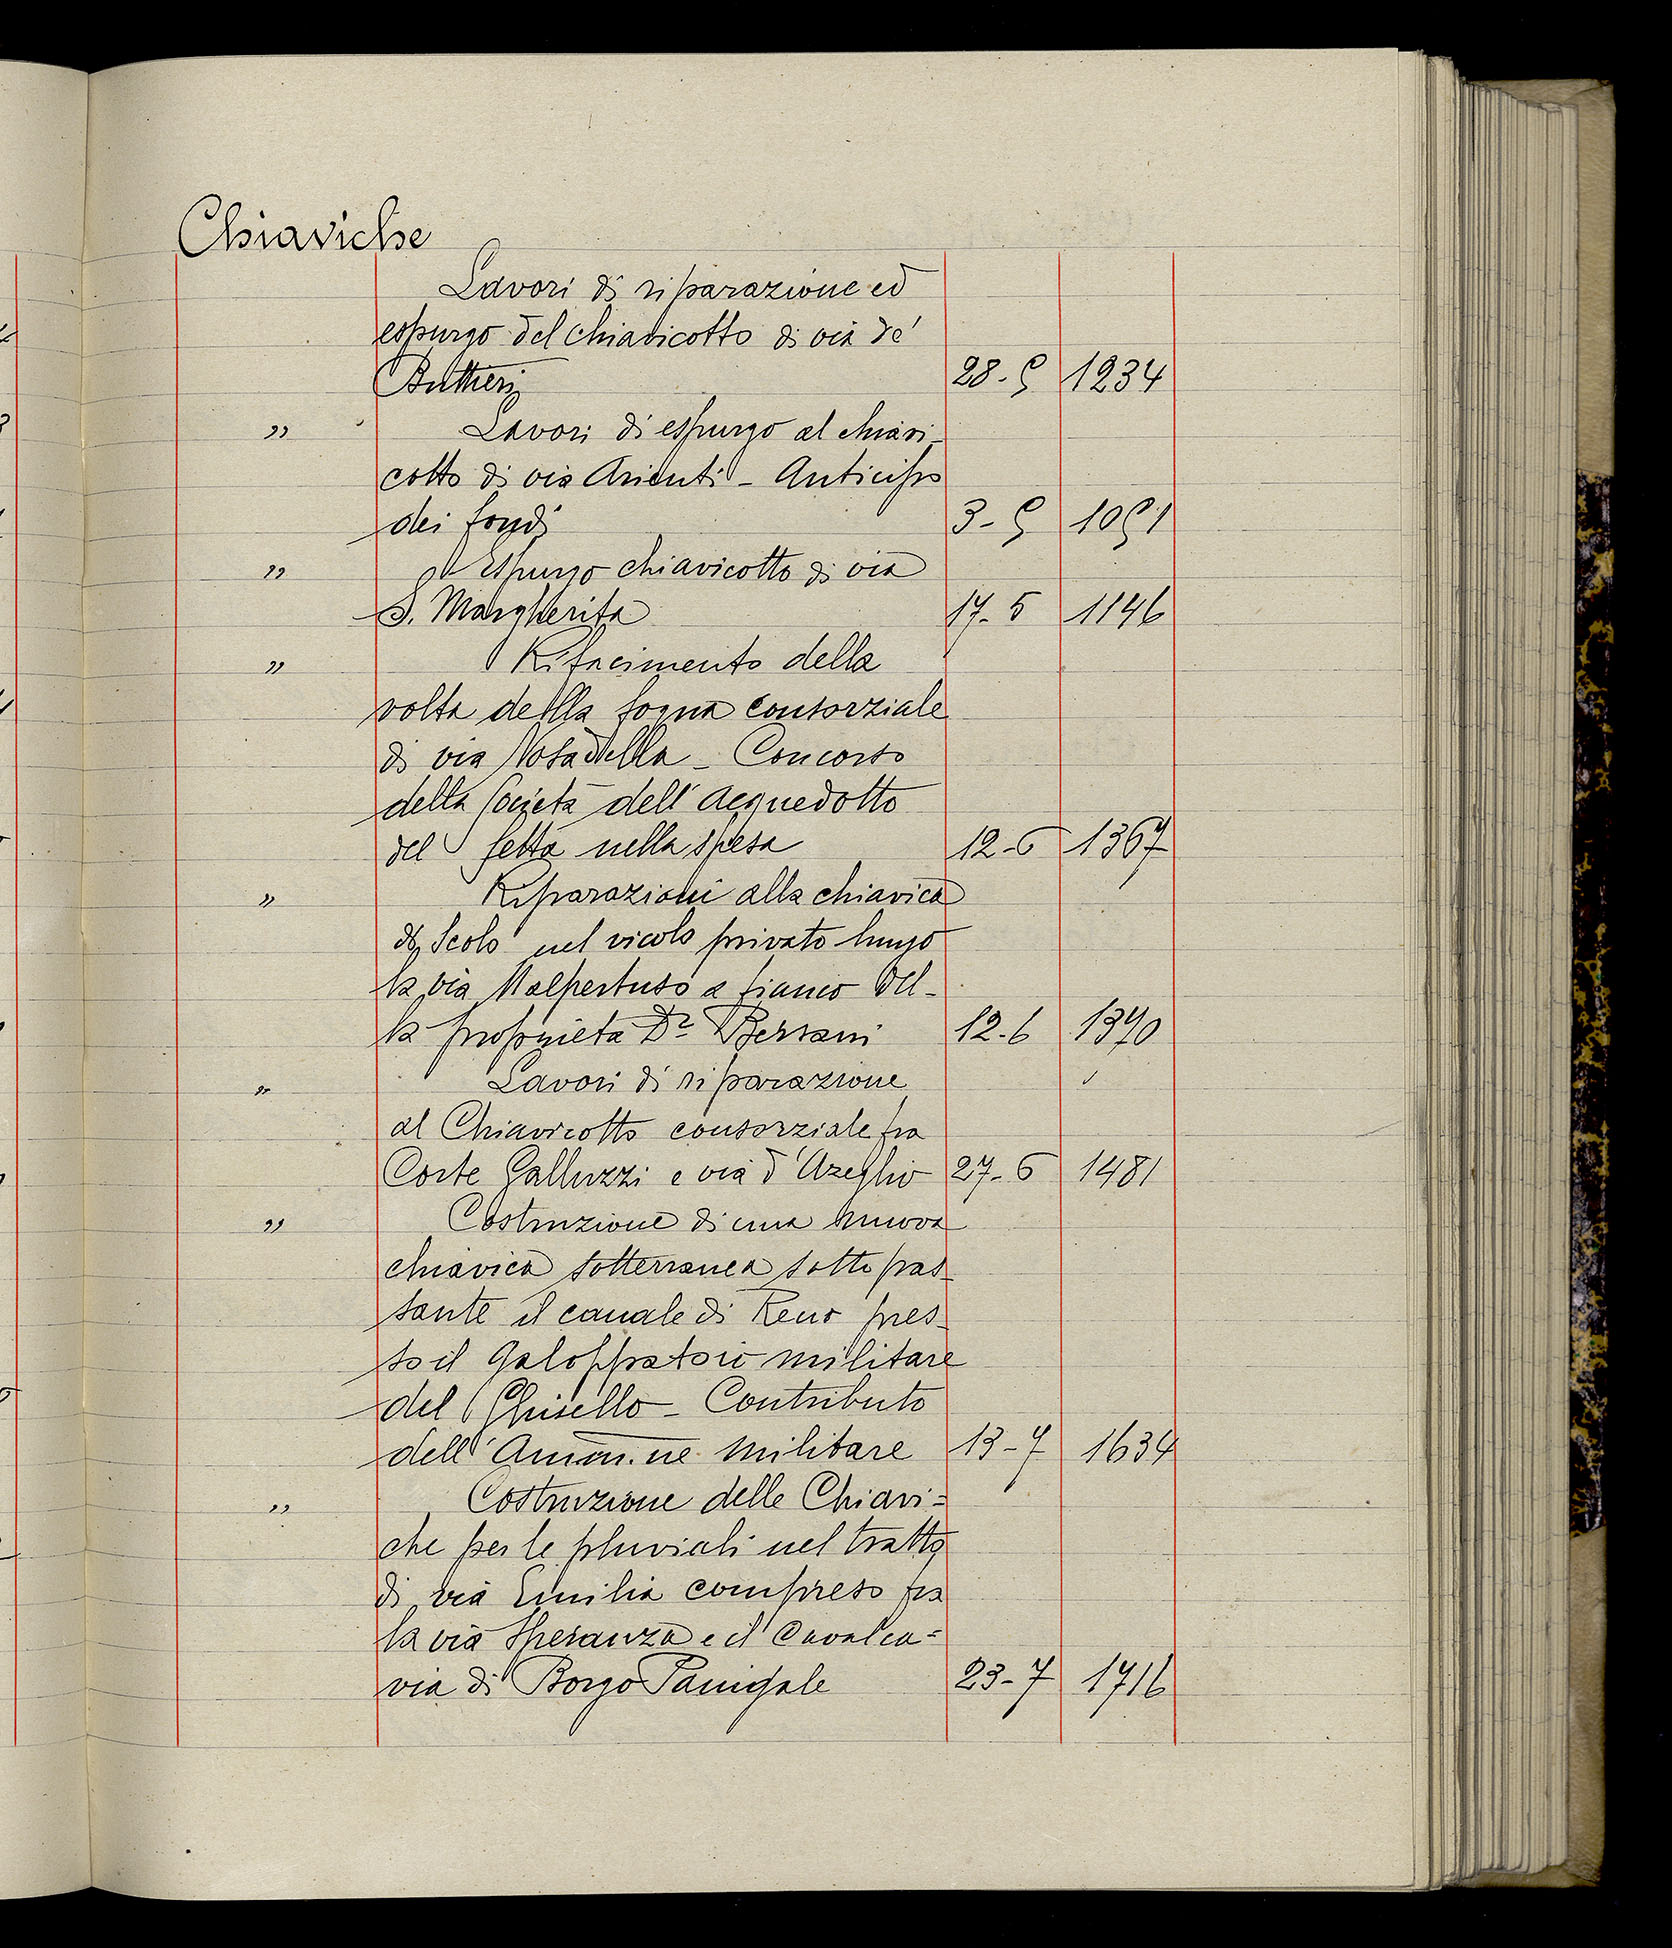 Chiaviche
Lavori di riparazione ed
espurgo del chiavicotto di via de'
Buttieri 28-5 1234
" Lavori di espurgo al chiavi-
cotto di via Arienti - Anticipo
dei fondi 3-5 1051
" Espurgo chiavicotto di via
S. Margherita 17-5 1146
" Rifacimento della
volta della fogna consorziale
di via Nosadella - Concorso
della Società dell'Acquedotto
del Setta nella spesa 12-6 1367
" Riparazioni alla chiavica
di Scolo nel vicolo privato lungo
la via Malpertuso a fianco del-
la proprietà Dr Bersani 12-6 1370
" Lavori di riparazione
al Chiavicotto consorziale fra
Corte Galluzzi e via d'Azeglio 27-6 1481
" Costruzione di una nuova
chiavica sotterranea sotto pas-
sante il canale di Reno pres-
so il Galoppatoio militare
del Ghisello - Contributo
dell'Amm.ne militare 13-7 1634
" Costruzione delle Chiavi=
che per le pluviali nel tratto
di via Emilia compreso fra
la via Speranza e il Cavalca=
via di Borgo Panigale 23-7 1716